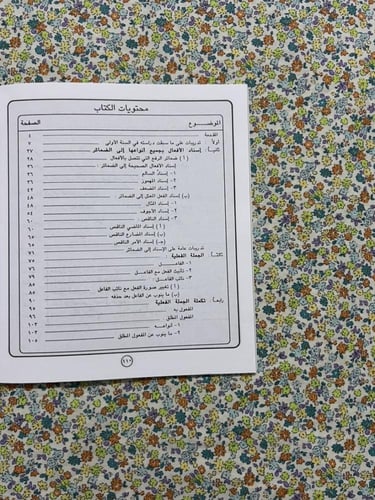 محتويات الكتاب
الموضوع الصفحة
المقدمة ٤
أولاً تدريبات على ما سبقت دراسته في السنة الأولى ٧
ثانياً: إسناد الأفعال بجميع أنواعها إلى الضمائر ٢٧
(أ) ضمائر الرفع التي تتصل بالأفعال ٢٨
إسناد الأفعال الصحيحة إلى الضمائر
١- إسناد السالم
٢- إسناد المهموز
٣- إسناد المضعف
(ب) إسناد الفعل المعتل إلى الضمائر ٤٨
١- إسناد المثال
٢- إسناد الأجوف ٥٤
٣- إسناد الناقص ٦٠
(أ) إسناد الماضي الناقص ٦٠
(ب) إسناد المضارع الناقص ٦٥
(جـ) إسناد الأمر الناقص
تدريبات عامة على الإسناد إلى الضمائر ٧١
ثالثاً: الجملة الفعلية ٧٦
١- الفاعل
٢- تأنيث الفعل مع الفاعل
٣- نائب الفاعل
(أ) تغيير صورة الفعل مع نائب الفاعل
(ب) ما ينوب عن الفاعل بعد حذفه ٩٠
رابعاً: تكملة الجملة الفعلية ٩٥
المفعول به
المفعول المطلق
١- أنواعه ١٠٣
٢- ما ينوب عن المفعول المطلق ١٠٥